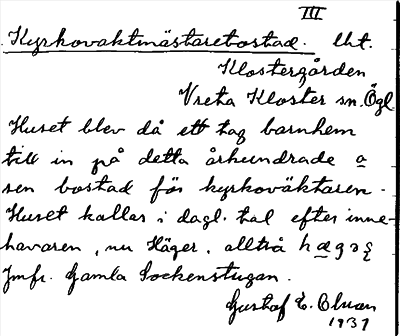 III
Kyrkovaktmästarebostad. lht.
Klostergården
Vreta Kloster sn. Ögl
Huset blev då ett tag barnhem
till in på detta århundrade o
sen bostad för kyrkoväktaren.
Huset kallas i dagl. tal efter inne-
havaren, nu Häger, alltså
Jmfr. Gamla Sockenstugan.
Gustaf E.
1937